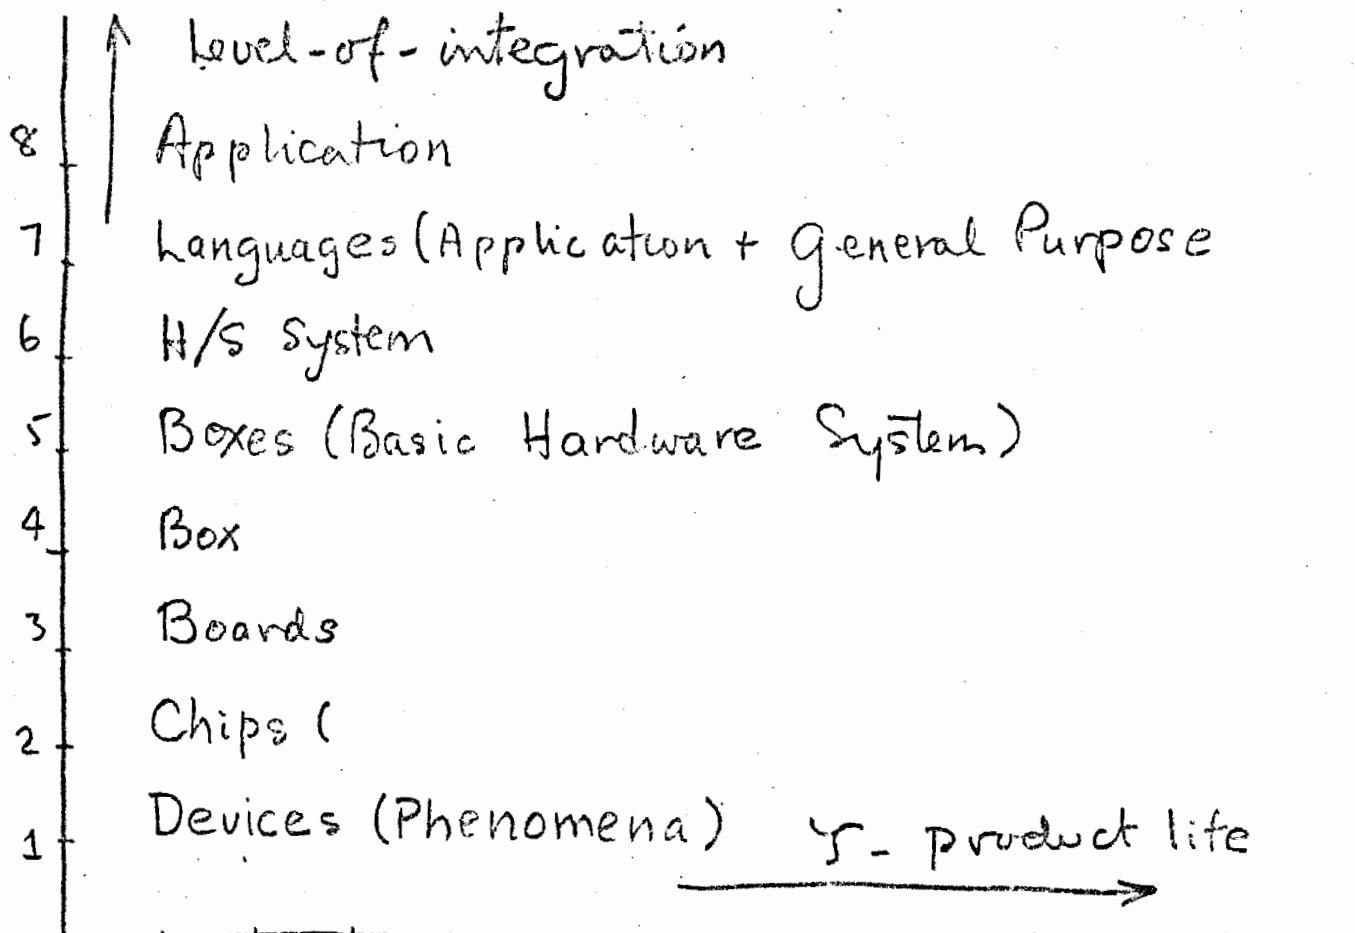 Level-of-integration
8 Application
7 Languages (Application + General Purpose
6 H/S System
5 Boxes (Basic Hardware System)
4 Box
3 Boards
2 Chips (
1 Devices (Phenomena)
- product life